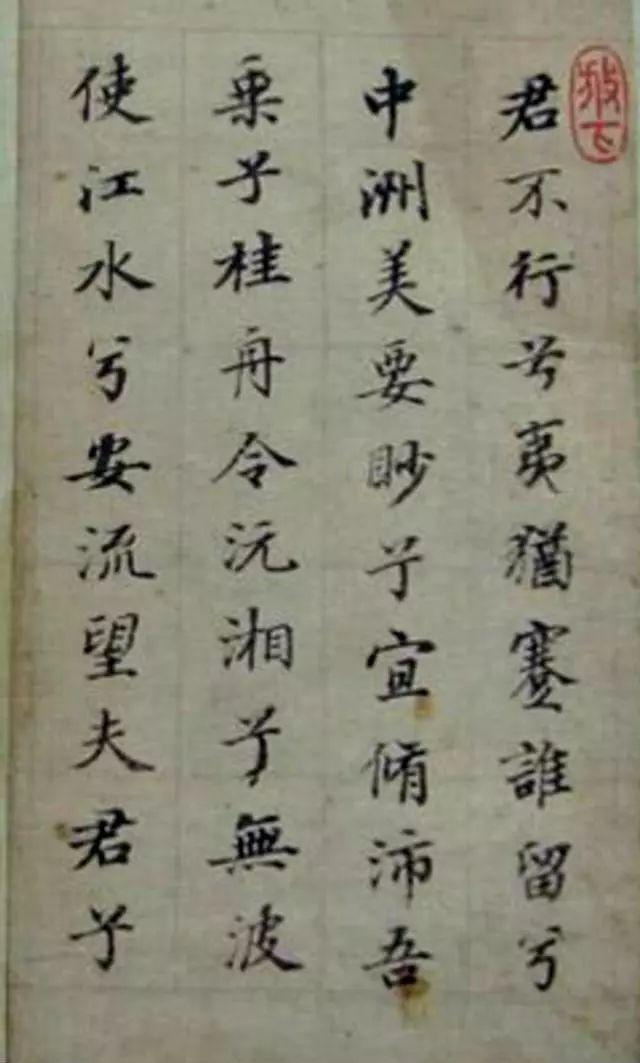 君不行兮夷猶蹇誰留兮
中洲美要眇兮宜脩沛吾
乗兮桂舟令沅湘兮無波
使江水兮安流望夫君兮